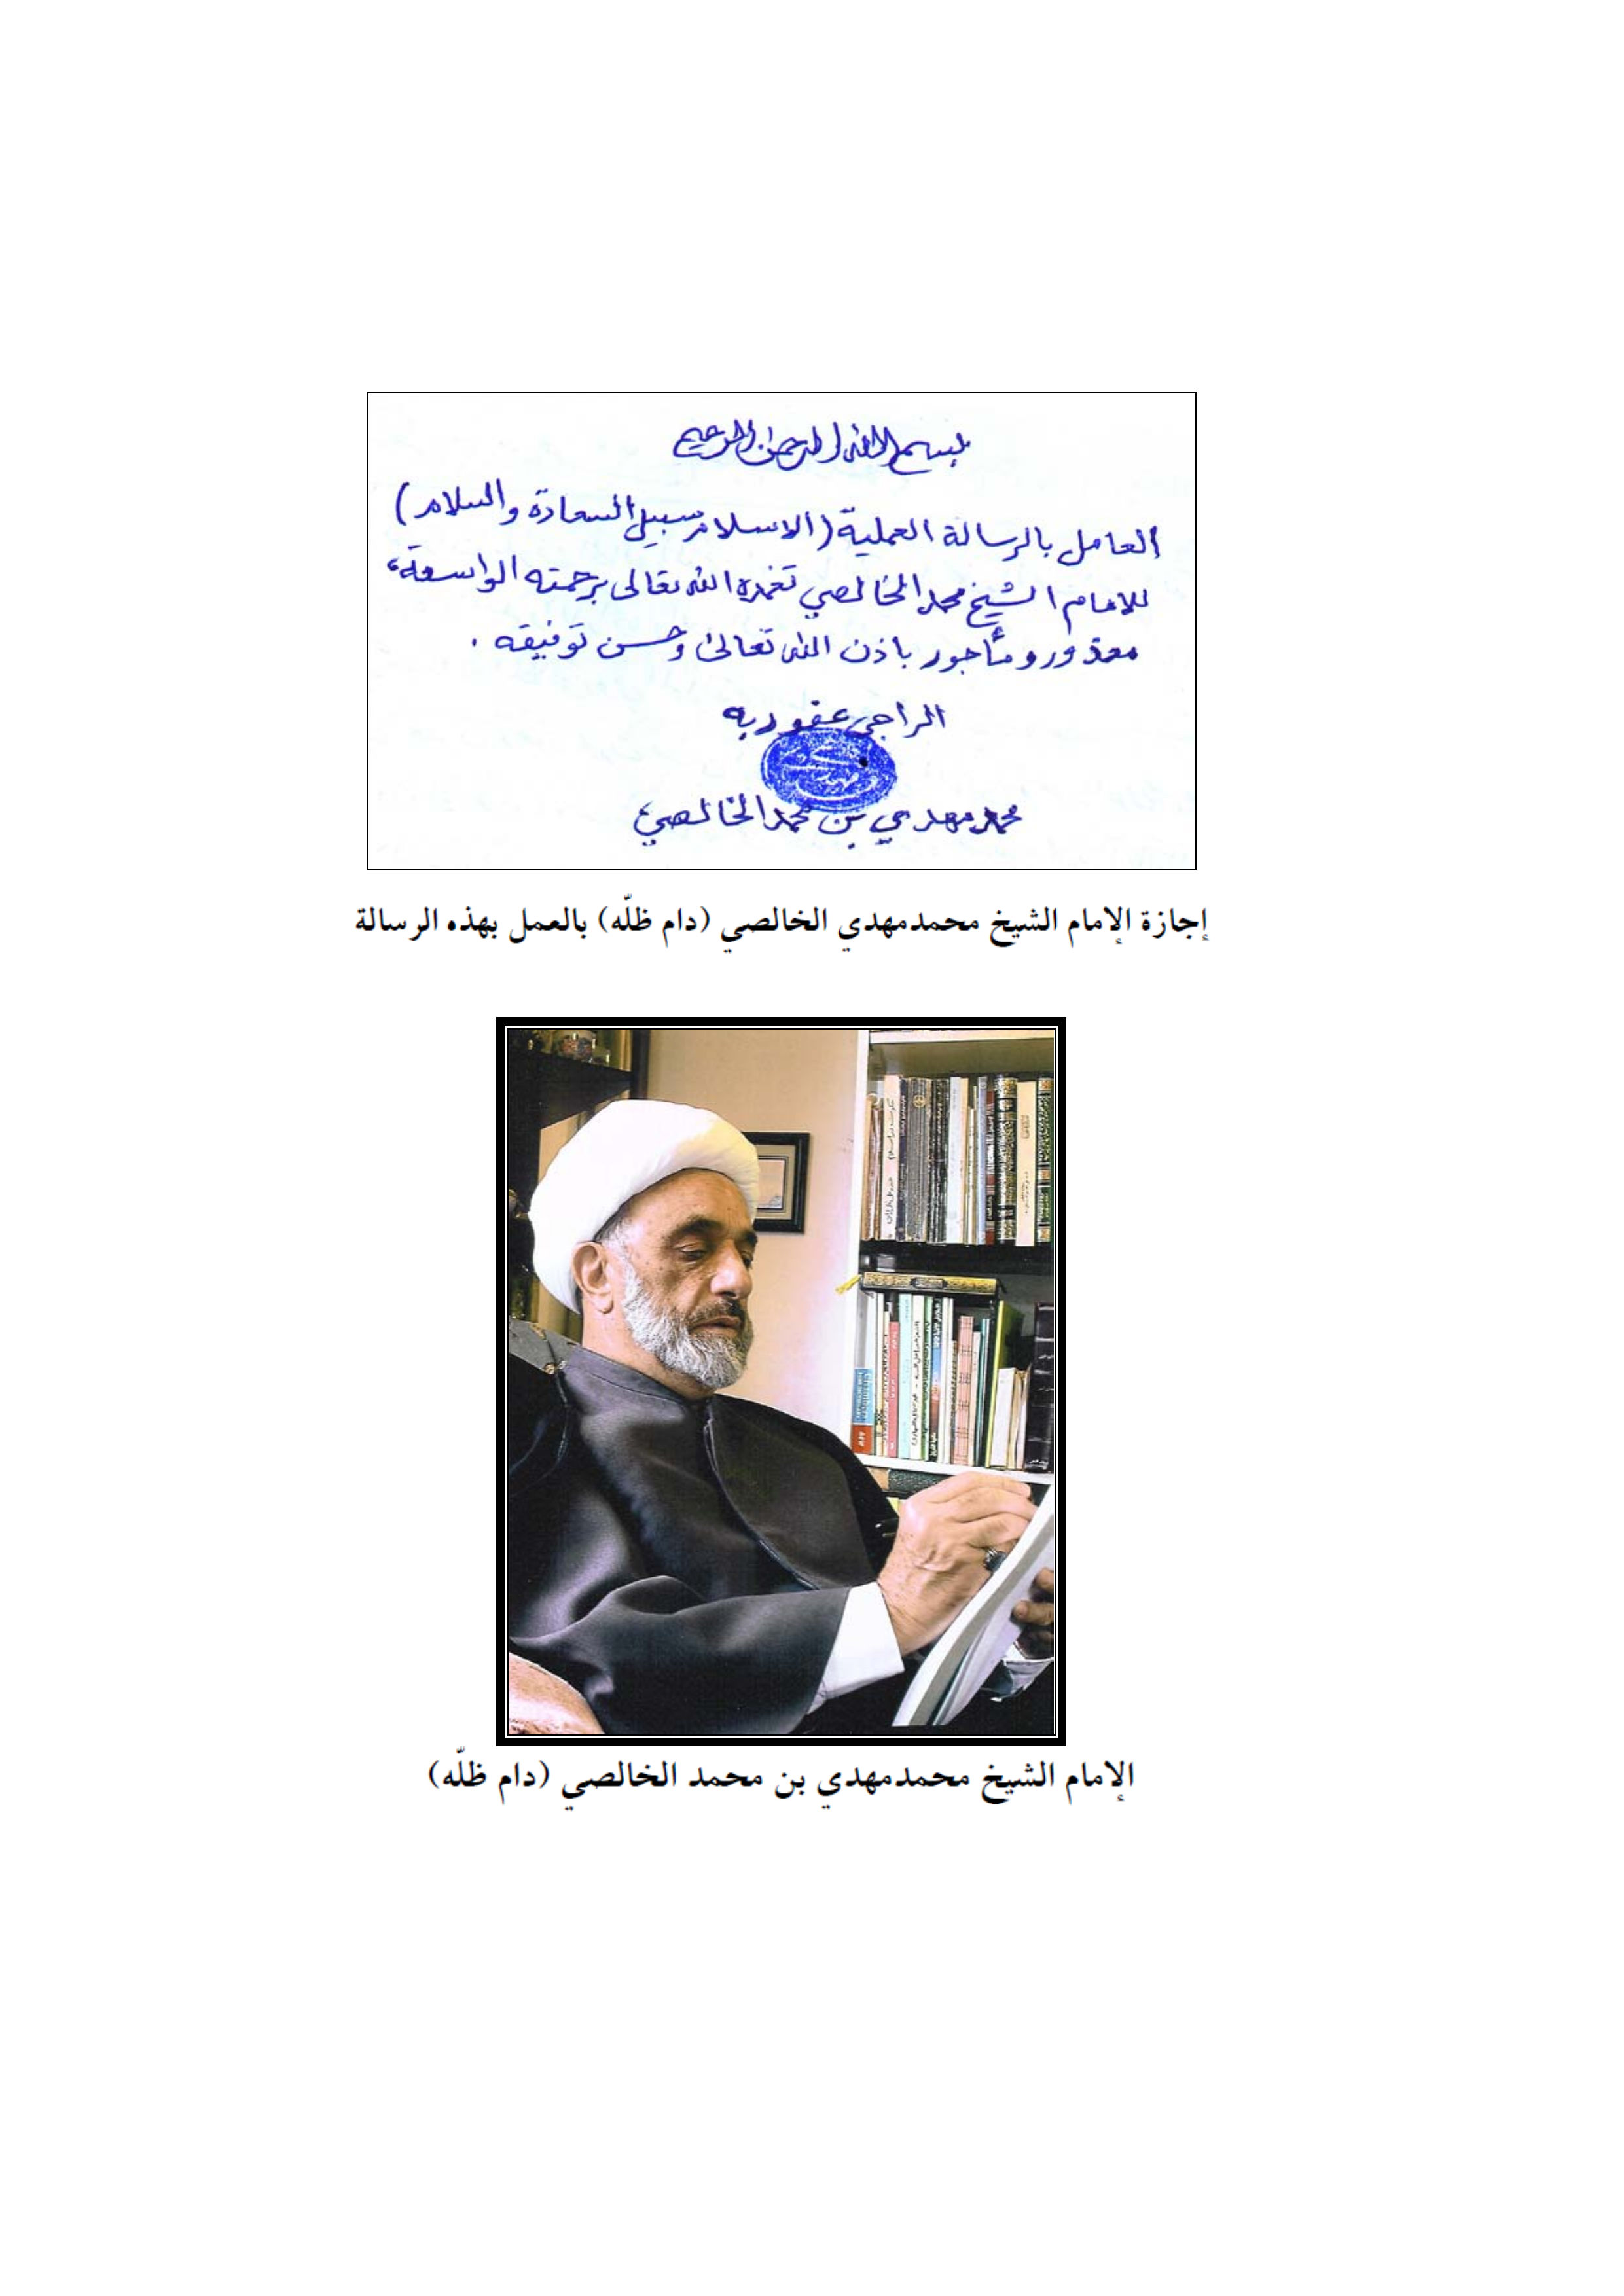 بسم الله الرحمن الرحيم
العامل بالرسالة العملية (الاسلام سبيل السعادة والسلام)
للامام الشيخ محمد الخالصي تغمده الله تعالى برحمته الواسعة،
معذور ومأجور باذن الله تعالى وحسن توفيقه .
الراجي عفو ربه
محمد مهدي بن محمد الخالصي
إجازة الإمام الشيخ محمدمهدي الخالصي (دام ظلّه) بالعمل بهذه الرسالة
الإمام الشيخ محمدمهدي بن محمد الخالصي (دام ظلّه)